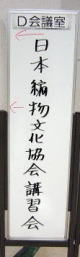 D会議室
日本編物文化協会講習会